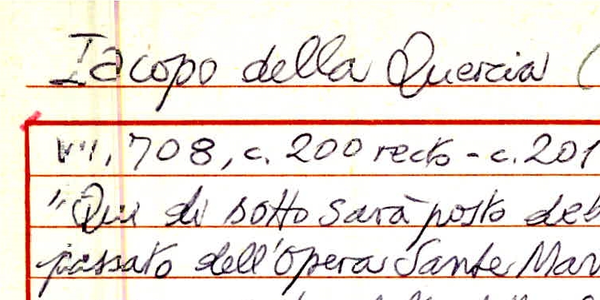 Iacopo della Quercia (
VII, 708, c. 200 recto - c. 201
"Qui di sotto sarà posto deb
passato dell'Opera Sante Mar